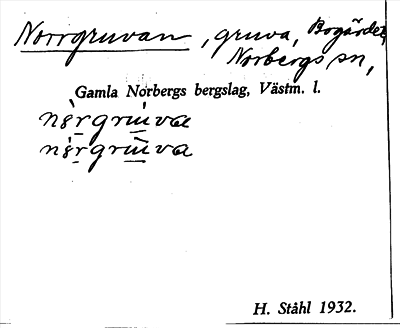 Norrgruvan, gruva, Bogärdet,
Norbergs sn,
Gamla Norbergs bergslag, Västm. l.
nòrgrúva
nòrgrùva
H. Ståhl 1932.